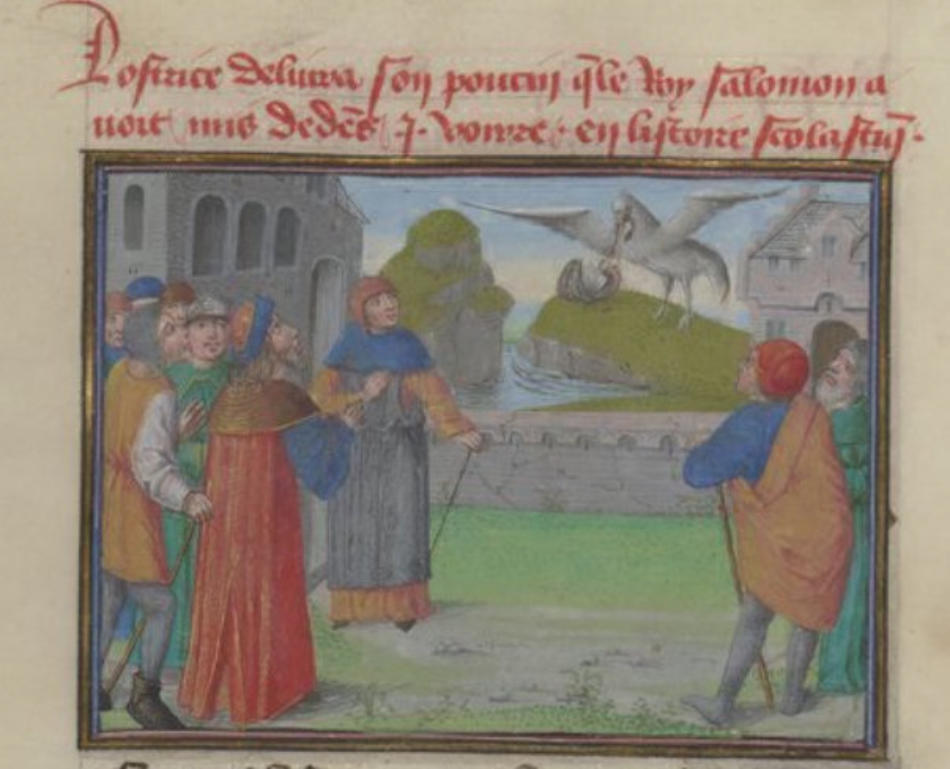 Lostrice deliura son poucin q̄ le Roy salomon a
uoit mis dedēs .j. voirre . en listoire scolastiq̄ .